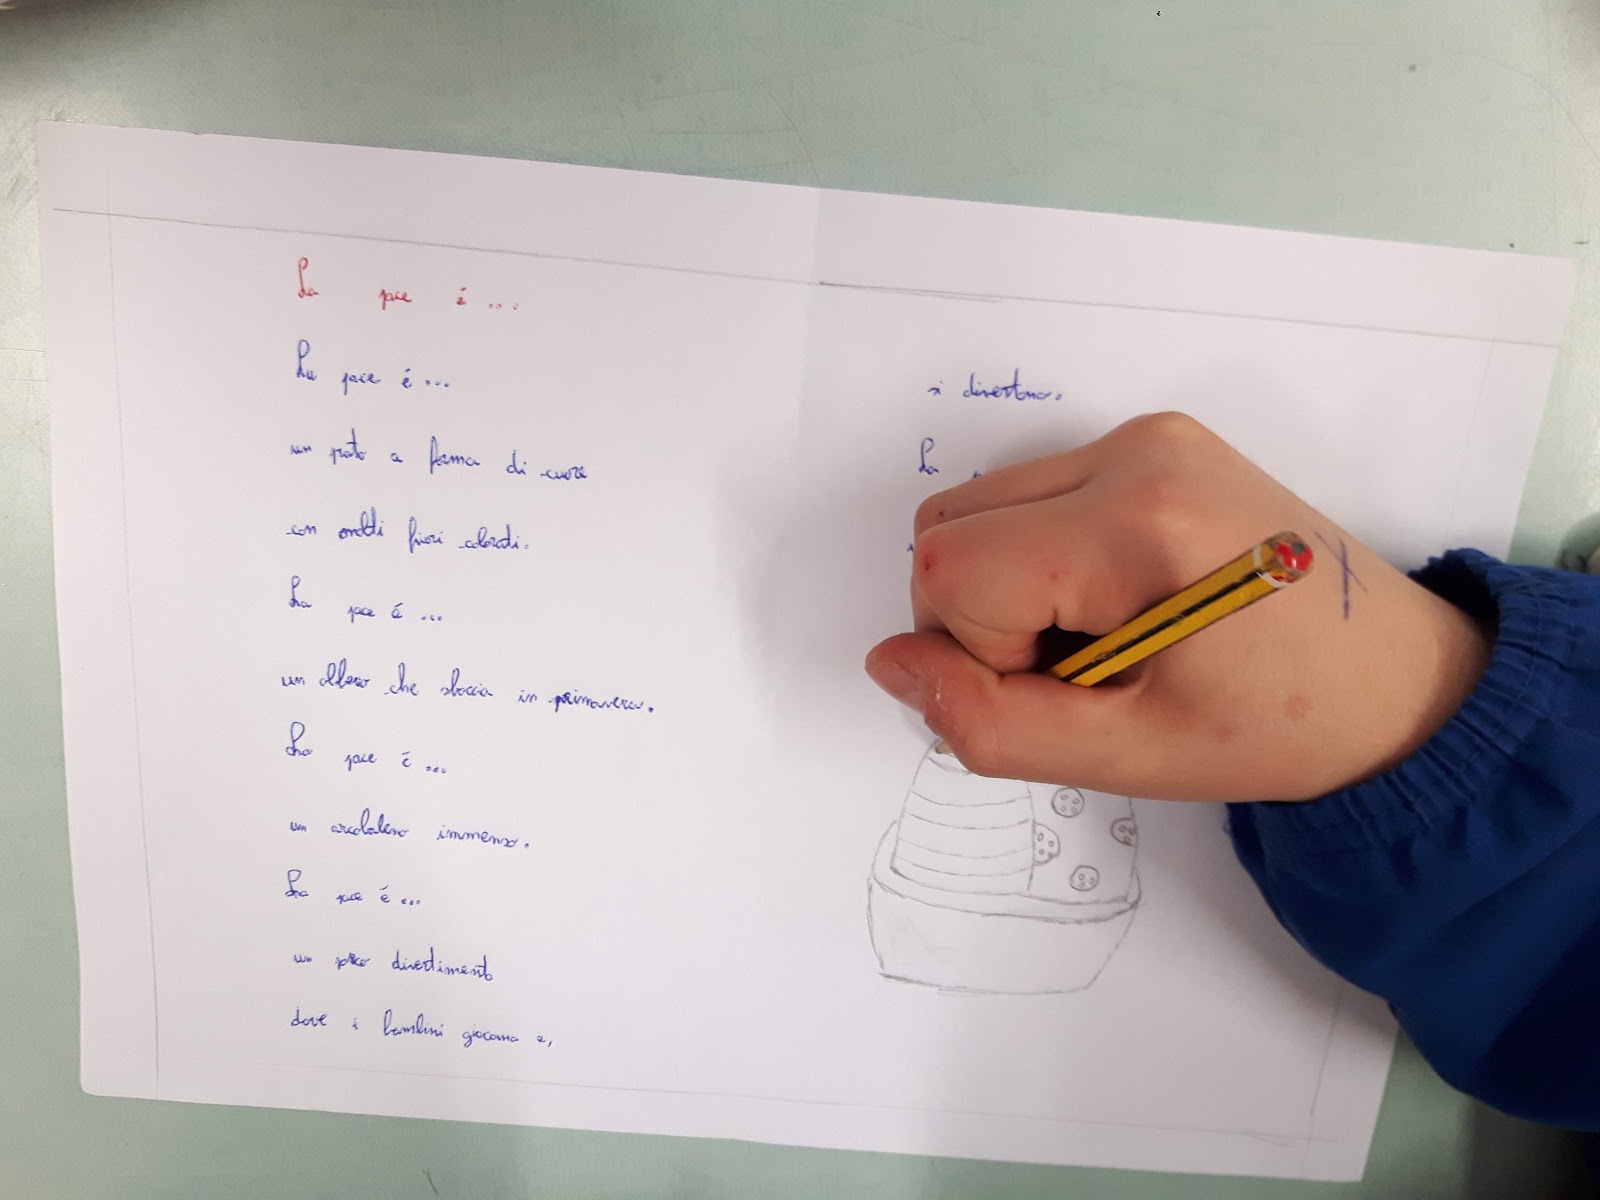 La pace é...
La pace é...
un prato a forma di cuore
con molti fiori colorati.
La pace é...
un albero che sboccia in primavera.
La pace é...
un arcobaleno immenso.
La pace é...
un divertimento
dove i bambini giocano e,
si divertono.
La